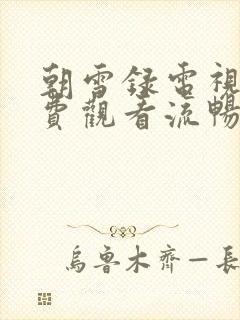 朝雪録電視
費觀看流暢
烏魯木齊—長